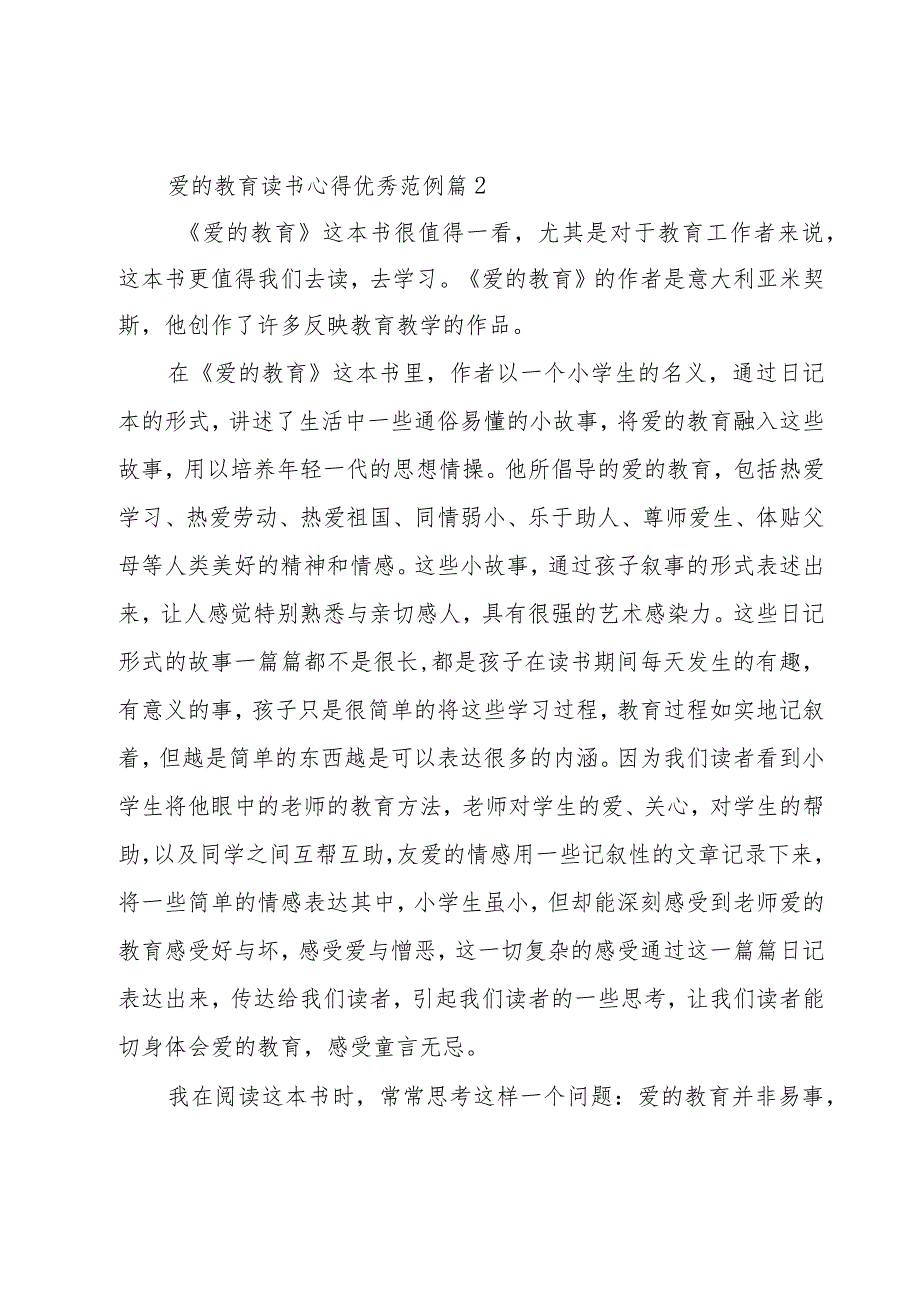 爱的教育读书心得优秀范例篇2
《爱的教育》这本书很值得一看，尤其是对于教育工作者来说，
这本书更值得我们去读，去学习。《爱的教育》的作者是意大利亚米契
斯，他创作了许多反映教育教学的作品。
在《爱的教育》这本书里，作者以一个小学生的名义，通过日记
本的形式，讲述了生活中一些通俗易懂的小故事，将爱的教育融入这些
故事，用以培养年轻一代的思想情操。他所倡导的爱的教育，包括热爱
学习、热爱劳动、热爱祖国、同情弱小、乐于助人、尊师爱生、体贴父
母等人类美好的精神和情感。这些小故事，通过孩子叙事的形式表述出
来，让人感觉特别熟悉与亲切感人，具有很强的艺术感染力。这些日记
形式的故事一篇篇都不是很长,都是孩子在读书期间每天发生的有趣，
有意义的事，孩子只是很简单的将这些学习过程，教育过程如实地记叙
着，但越是简单的东西越是可以表达很多的内涵。因为我们读者看到小
学生将他眼中的老师的教育方法，老师对学生的爱、关心，对学生的帮
助,以及同学之间互帮互助,友爱的情感用一些记叙性的文章记录下来，
将一些简单的情感表达其中，小学生虽小，但却能深刻感受到老师爱的
教育感受好与坏，感受爱与憎恶，这一切复杂的感受通过这一篇篇日记
表达出来，传达给我们读者，引起我们读者的一些思考，让我们读者能
切身体会爱的教育，感受童言无忌。
我在阅读这本书时，常常思考这样一个问题：爱的教育并非易事，